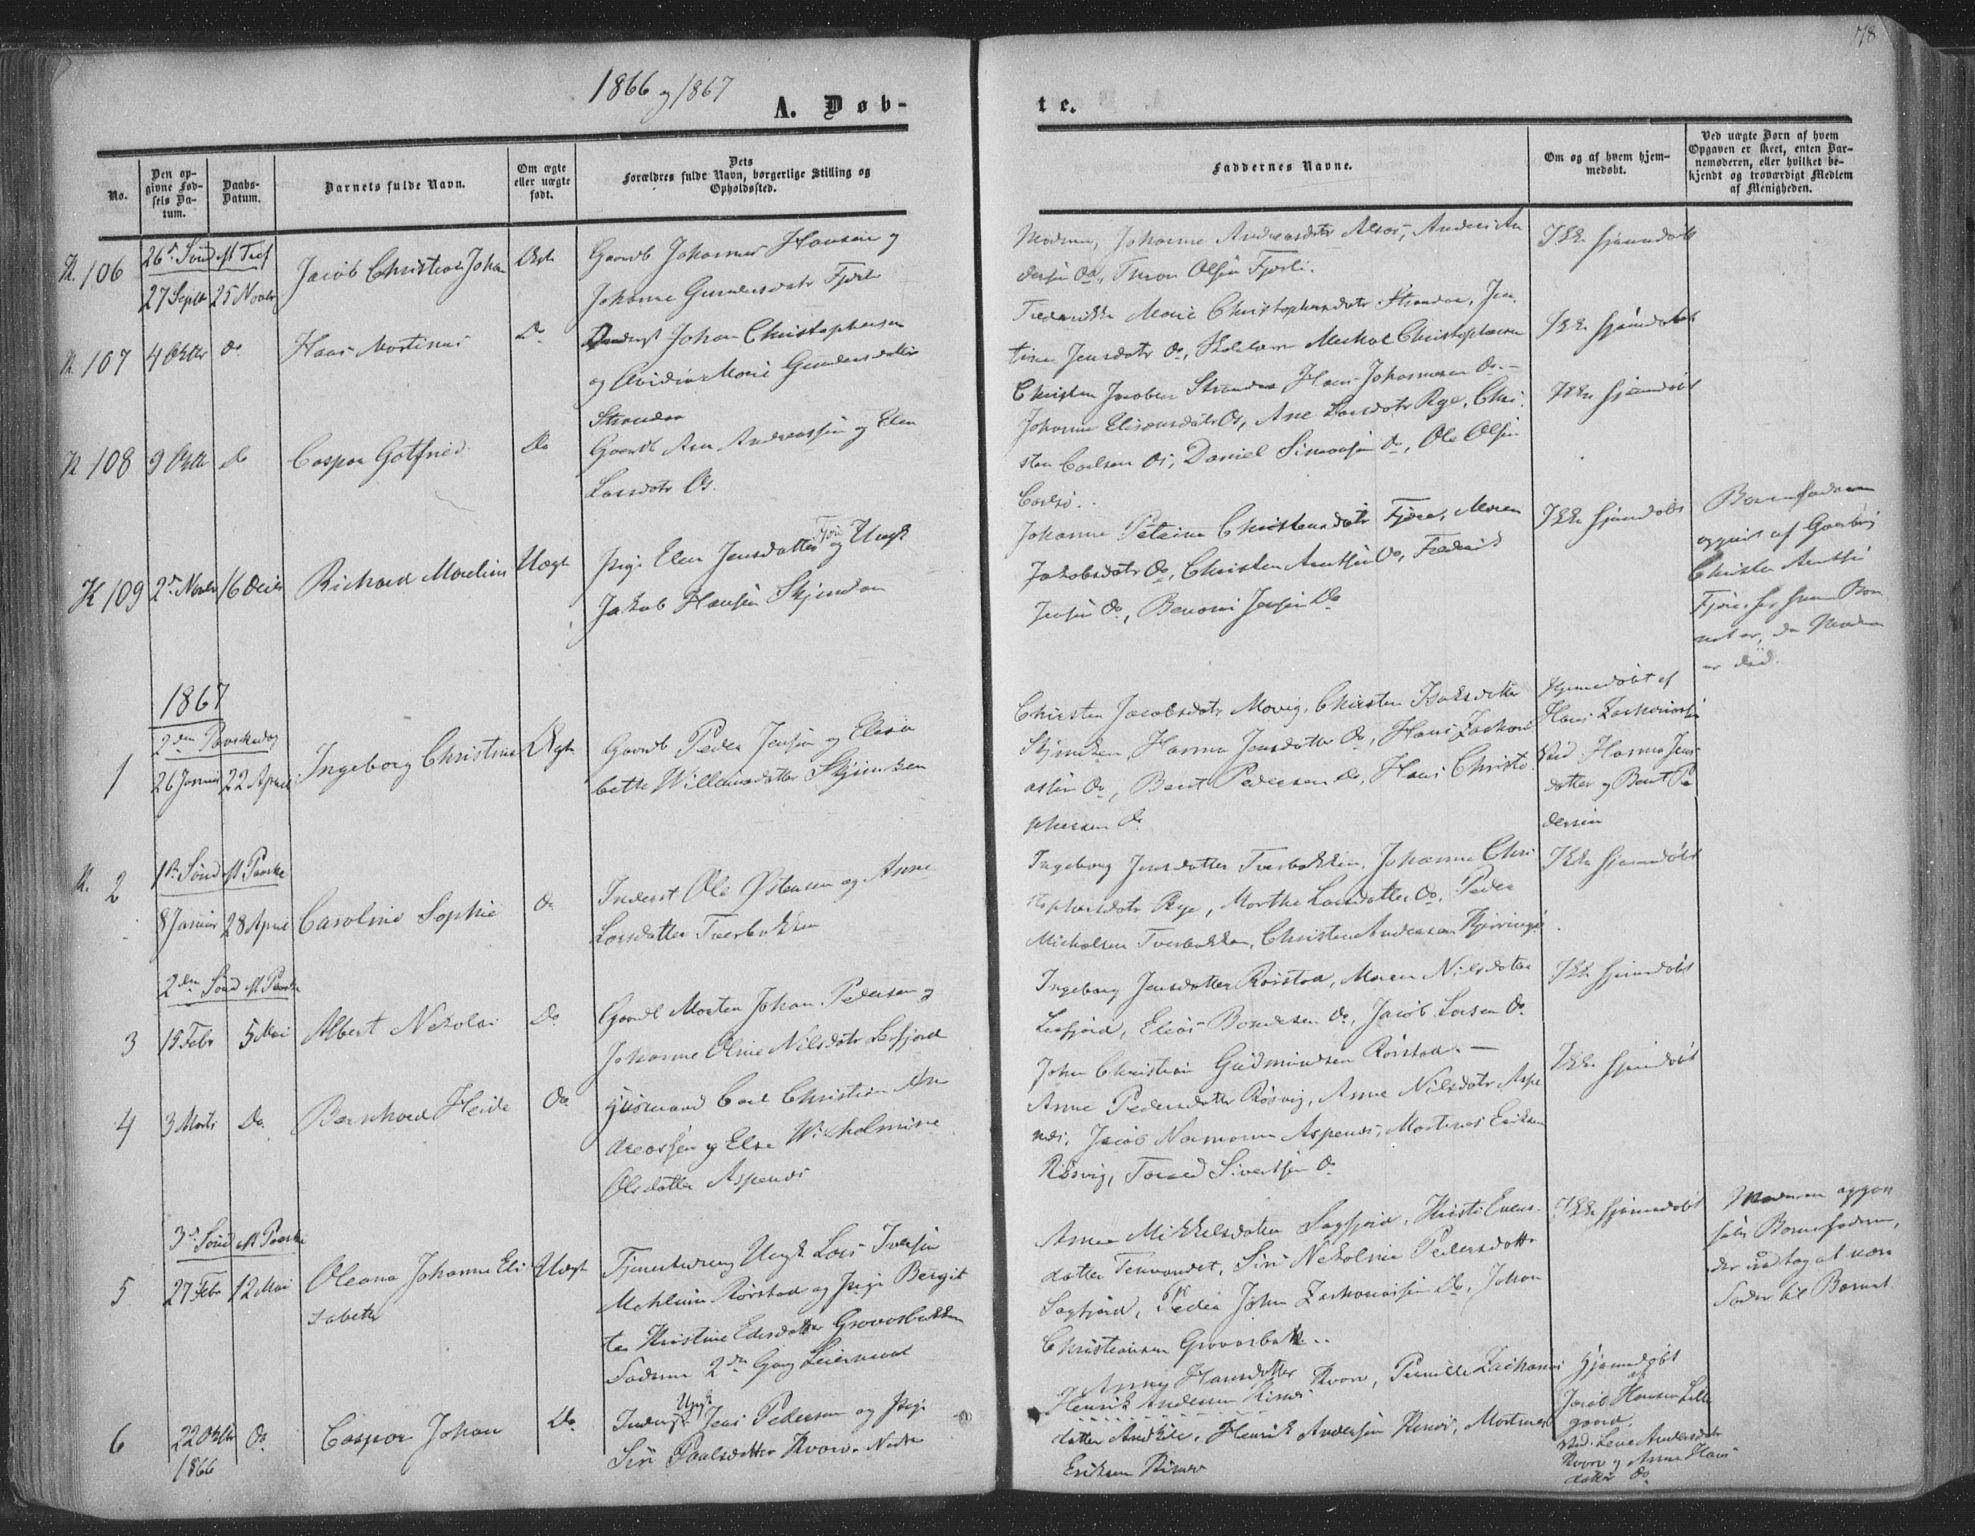 78
1866 og 1867
A. Døb-
te.
No.
Den op-
givne Fød-
sels Da-
tum.
Daabs-
Datum.
Barnets fulde Navn.
Om ægte
eller uægte
født.
Dets
Forældres fulde Navn, borgerlige Stilling og
Opholdssted.
Faddernes Navne.
Om og af hvem hjem-
medøbt.
Ved uægte Børn af hvem
Opgaven er skeet, enten Bar-
nemoderen, eller hvilket be-
kjendt og troværdigt Medlem
af Menigheden.
K. 106
26de Sønd. eft Tref
27 Septbr 25 Novbr
Jacob Christian Johan
Ægte
Gaardb Johannes Hansen og
Johanna Gundersdatr Fjerli
Moderen, Johanna Andreasdatr
dersen Do, Thron Olsen Fjerli.
Ikke hjemmdøbt
K 107
4 Oktbr
do
Hans Martinus
Do
Johan Christophersen
og Marie Gundersdatter
Stranden
Frederikke Marie Christophersdatr Stranden, Jen-
tine Jensdatr Do, Michal Christophersen
Christen Jacobsen Stranden Hans Johannesen Do. -
Ikke hjemmdøbt
K 108
9 Oktbr
Do
Caspar Gotfried
Do
Gaardb Arn Andreassen og Elen
Larsdatr Os.
Johanna Eliseusdatr Os, Ane Larsdatr Rye, Chri-
sten Carlsen Os, Daniel Simonsen Do, Ole Olsen
Ikke hjemmdøbt
K 109
2de Novbr
16 Decbr
Richard Mordin
Uægte
Pige Elen Jensdatter Fjære og Ungk
Jakob Hansen Skjendan
Johanna Petrine Christensdatr Fjære, Maren
Jakobsdatr Do, Christen Arntsen Do, Frederik
Jensen Do, Benoni Jensen Do
Ikke hjemmdøbt
Barnefaderen
opgivet af Gaardbrg
Christen Arntsen
Fjære hos hvem Bar-
net er, da Moderen
er død.
1867
2den Paaskedag
1
26 Januar
22 April
Ingeborg Christine
Ægte
Gaardb Peder Jensen og Elisa-
beth Willumsdatter
Christen Jacobsdatr Movig, Christen Isaksdatter
Hanna Jensdatter Do, Hans Zachari-
assen Do, Bent Pedersen Do, Hans Christo-
phersen Do
Hjemmedøbt af
Hans Zachariassen
Vid. Hanna Jens-
datter og Bent Pe-
dersen
K. 2
1ste Sønd eft Paaske
8 Januar
28 April
Caroline Sophie
Do
Inderst Ole Ostensen og Anne
Larsdatter Tverbakken
Ingeborg Jensdatter Tverbakken, Johanne Chri-
stophersdatr Rye, Marthe Larsdatter Do, Peder
Michalsen Tverbakken, Christen Andersen
Ikke hjemmdøbt
2den Sønd eft Paaske
3
15 Febr
5 Mai
Albert Nikolai
Do
Gaardb Morten Johan Pedersen og
Johanne Oline Nilsdatr Leifjord
Ingeborg Jensdatter Rørstad, Maren Nilsdatter
Leifjord, Elias Do, Jacob Larsen Do
John Christian Gudmundsen Rørstad. -
Ikke hjemmdøbt
4
3 Marts
Do
Bernhard Heide
Do
Huusmand Carl Christian An-
dreassen og Else Wilhelmine
Olsdatter Aspenes
Anne Pedersdatter Røsvig, Anne Nilsdatr Aspe-
nes, Jacob Normann Aspenes, Martinus Eriksen
Røsvig, Tarald Sivertsen Do
Ikke hjemmdøbt
3de Sønd eft Paaske
5
27 Febr
12 Mai
Oleana Johanne Eli-
sabeth
Uægte
Tjenestdreng Ungk Lars Iversen
Rørstad og Pige Bergit-
te Kristine Grovasbakken
Faderens 2den Gang Leiermaal
Anne Mikkelsdatter Sagfjord, Kristi Evens-
datter Tennvandet, Siri Nikoline Pedersdatter
Sagfjord, Peder John Zachariassen Do, Johan
Christiansen Grovasbak..
Ikke hjemmdøbt
Moderen opgav
selv Barnefaderen,
der vedtog at være
Fader til Barnet
6
22 Oktbr
1866
Do.
Caspar Johan
Do
Inderst Ungk Jens Pedersen og Pige
Siri Paalsdatter Kvarv Nedre
Anne Hansdatter Kvarv, Pernille Zacharias-
Henrik Andersen Risnes
datter Andkil, Henrik Andersen Risnes, Martinus
Eriksen Risnes
Hjemmdøbt
af
Jacob Hansen Lille-
gaard.
Vid. Lene Andersdatr
Kvarv og Anne Hans-
datter Do